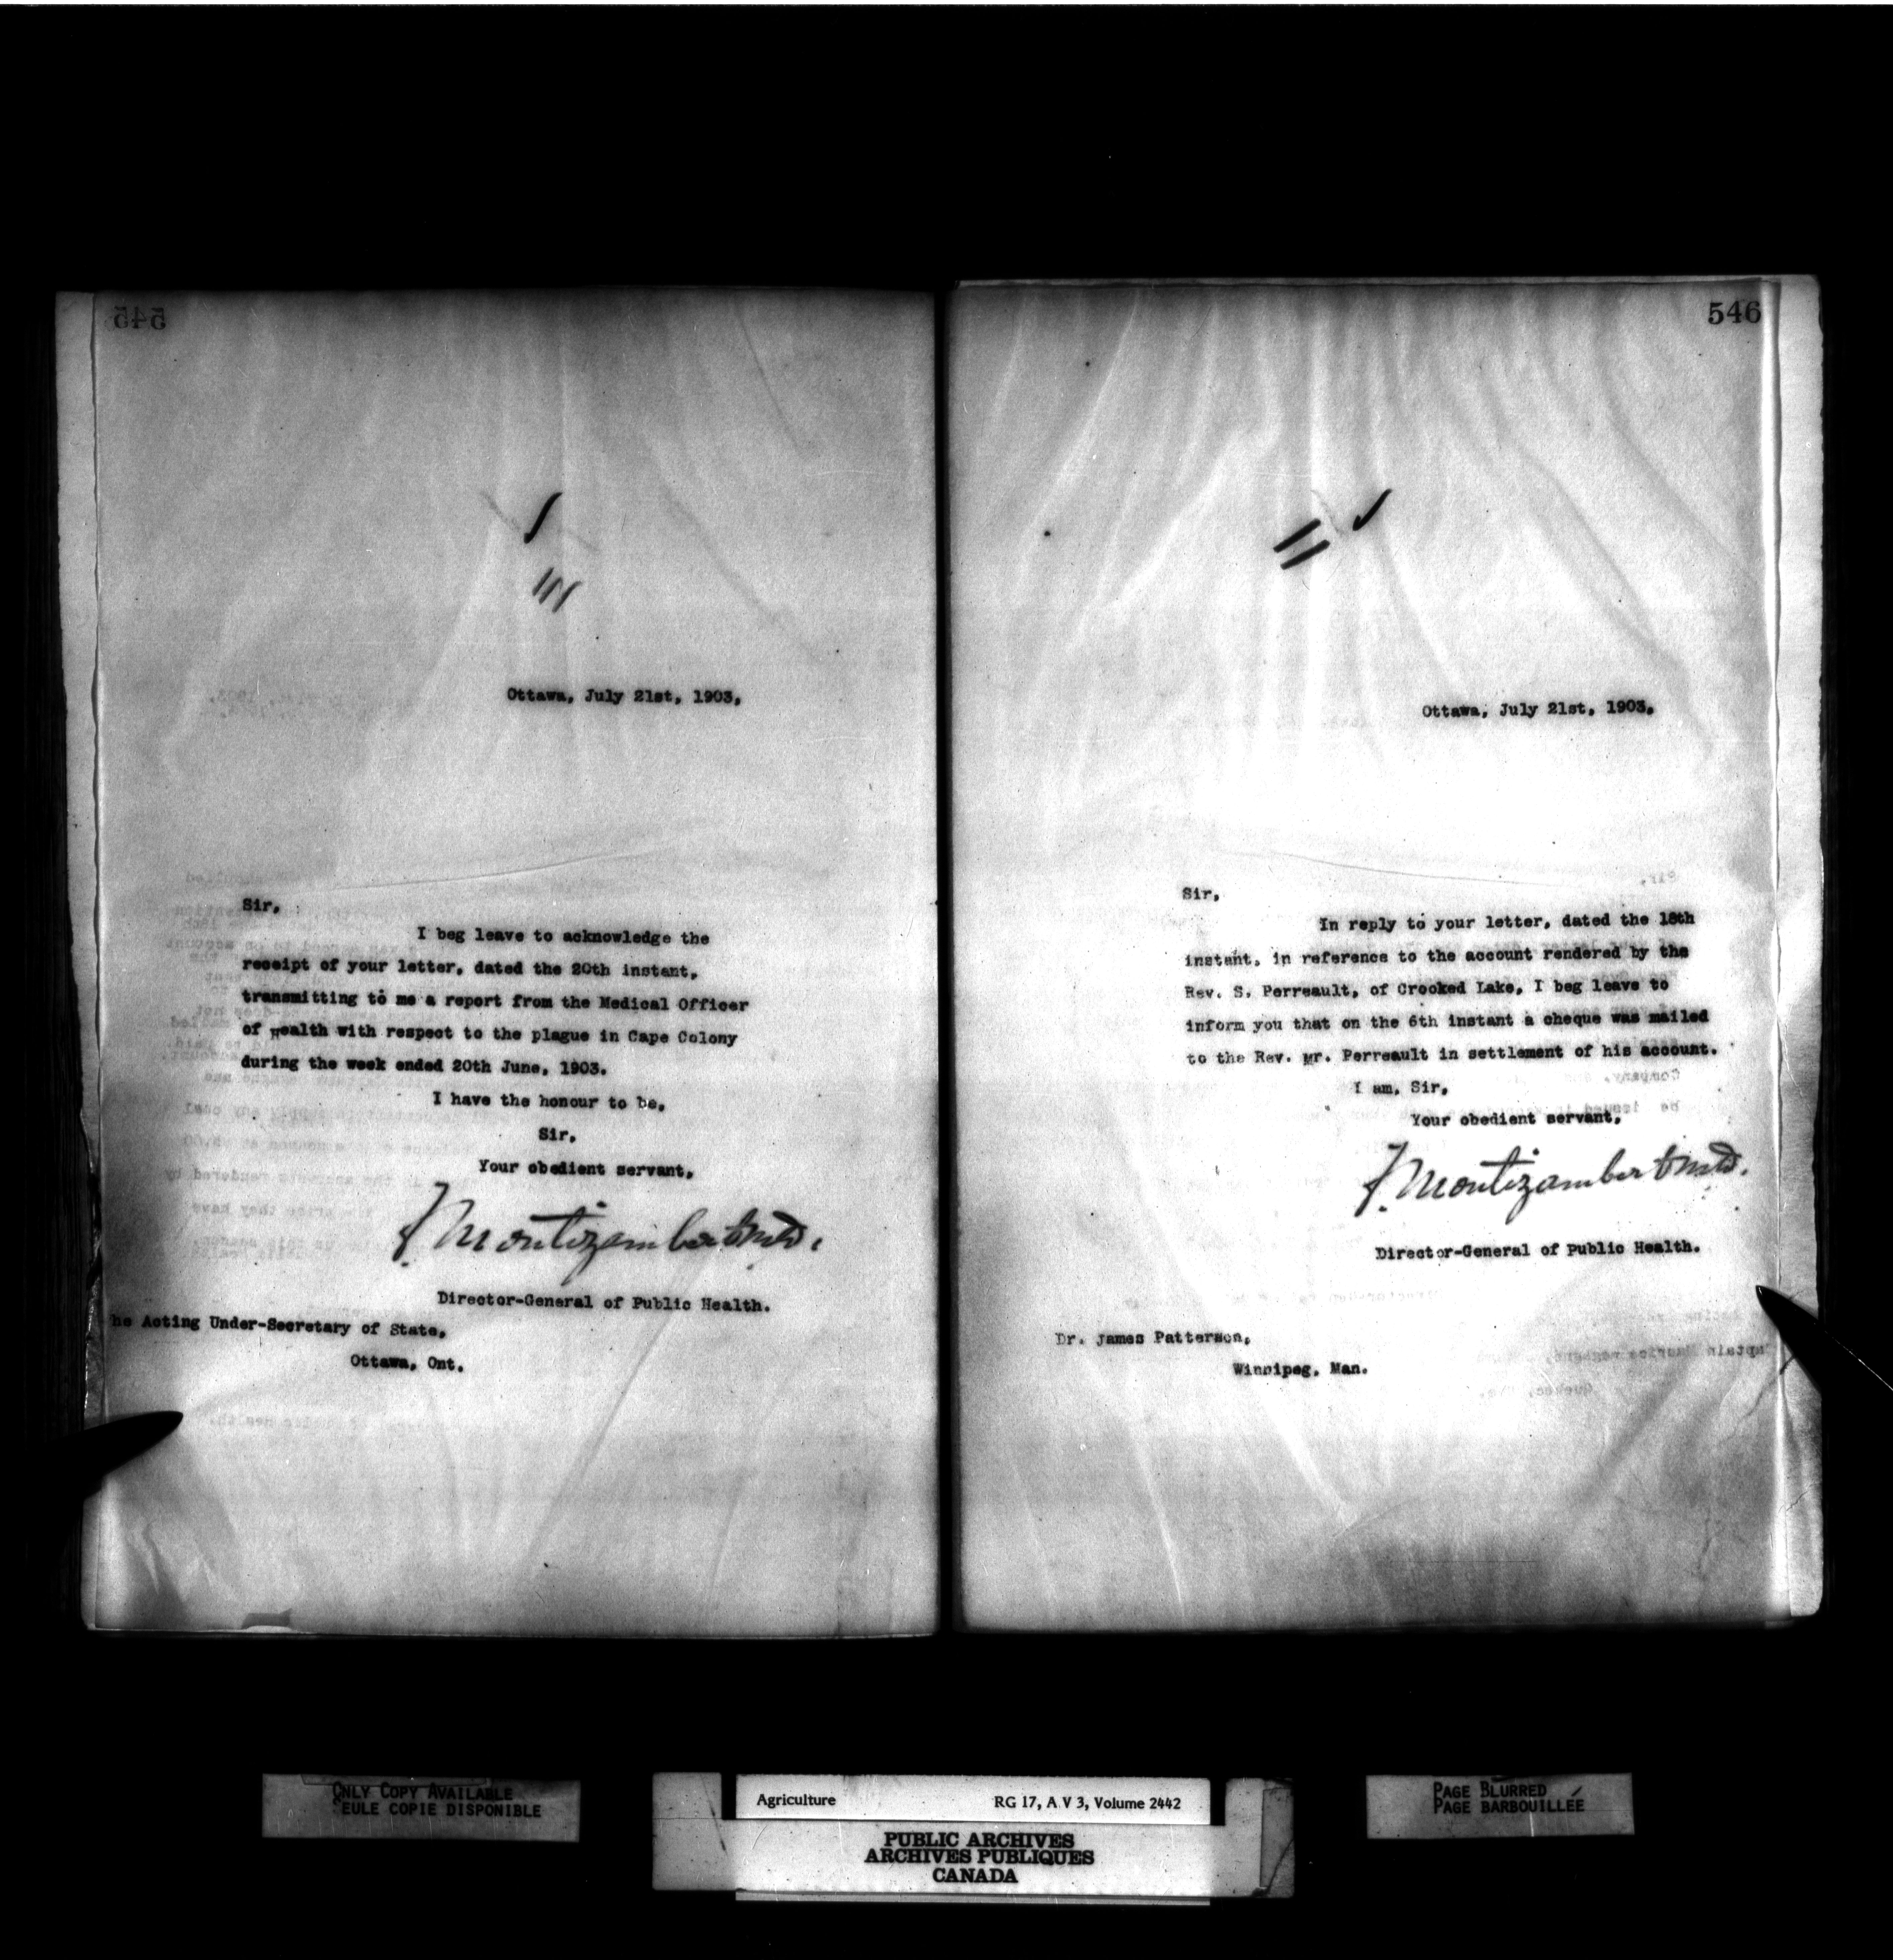 545
Ottawa, July 21st, 1903.
Sir,
I beg leave to acknowledge the
receipt of your letter, dated the 20th instant,
transmitting to me a report from the Medical Officer
of Health with respect to the plague in Cape Colony
during the week ended 20th June, 1903.
I have the honour to be,
Sir,
Your obedient servant,
F Montizambert M.D.
Director-General of Public Health.
he Acting Under-Secretary of State,
Ottawa, Ont.
546
Ottawa, July 21st, 1903.
Sir,
In reply to your letter, dated the 18th
instant, in reference to the account rendered by the
Rev. S. Perreault, of Crooked Lake, I beg leave to
inform you that on the 6th instant a cheque was mailed
to the Rev. Mr. Perreault in settlement of his account.
I am, Sir,
Your obedient servant,
F Montizambert M.D.
Director-General of Public Health.
Dr. James Patterson,
Winnipeg, Man.
ONLY COPY AVAILABLE
SEULE COPIE DISPONIBLE
Agriculture RG 17, A V 3, Volume 2442
PUBLIC ARCHIVES
ARCHIVES PUBLIQUES
CANADA
PAGE BLURRED
PAGE BARBOUILLÉE